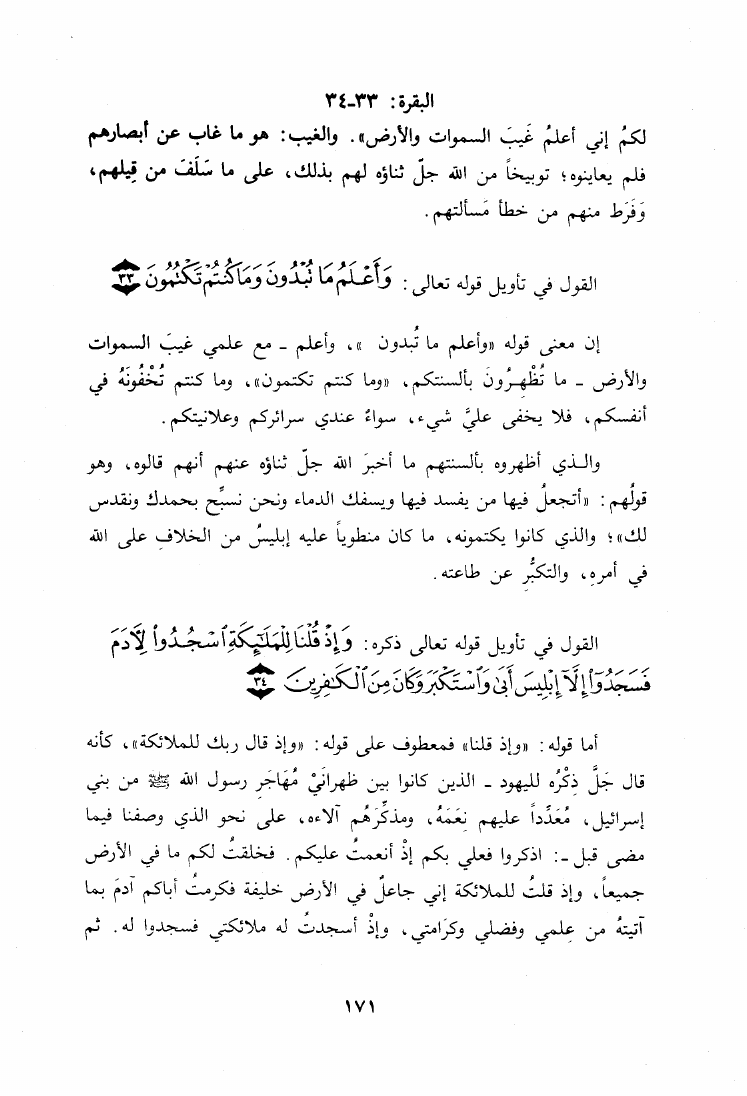 البقرة: ٣٣-٣٤
لكمُ إني أعلمُ غَيبَ السموات والأرض». والغيب: هو ما غاب عن أبصارهم
فلم يعاينوه؛ توبيخاً من الله جلّ ثناؤه لهم بذلك، على ما سَلَفَ من قِيلهم،
وَفَرَط منهم من خطأ مَسألتهم.
القول في تأويل قوله تعالى: وَأَعْلَمُ مَا تُبْدُونَ وَمَا كُنتُمْ تَكْتُمُونَ ٣٣
إن معنى قوله «وأعلم ما تُبدون »، وأعلم ـ مع علمي غيبَ السموات
والأرض ـ ما تُظْهِرُونَ بألسنتكم، «وما كنتم تكتمون»، وما كنتم تُخْفُونَهُ في
أنفسكم، فلا يخفى عليَّ شيء، سواءٌ عندي سرائركم وعلانيتكم.
والذي أظهروه بألسنتهم ما أخبرَ الله جلّ ثناؤه عنهم أنهم قالوه، وهو
قولُهم: «أتجعلُ فيها من يفسد فيها ويسفك الدماء ونحن نسبِّح بحمدك ونقدس
لك»؛ والذي كانوا يكتمونه، ما كان منطوياً عليه إبليسُ من الخلافِ على الله
في أمرِه، والتكبُّر عن طاعته.
القول في تأويل قوله تعالى ذكره: وَإِذْ قُلْنَا لِلْمَلَٰٓئِكَةِ ٱسْجُدُوا۟ لِءَادَمَ
فَسَجَدُوٓا۟ إِلَّآ إِبْلِيسَ أَبَىٰ وَٱسْتَكْبَرَ وَكَانَ مِنَ ٱلْكَٰفِرِينَ ٣٤
أما قوله: «وإذ قلنا» فمعطوف على قوله: «وإذ قال ربك للملائكة»، كأنه
قال جَلَّ ذِكْرُه لليهود ـ الذين كانوا بين ظهرانَيْ مُهَاجَرِ رسول الله ﷺ من بني
إسرائيل، مُعَدِّداً عليهم نِعَمَهُ، ومذكِّرَهُم آلاءه، على نحو الذي وصفنا فيما
مضى قبل ـ: اذكروا فعلي بكم إذْ أنعمتُ عليكم. فخلقتُ لكم ما في الأرض
جميعاً، وإذ قلتُ للملائكة إني جاعلٌ في الأرض خليفة فكرمتُ أباكم آدمَ بما
آتيتهُ من عِلمي وفضلي وكَرَامتي، وإذْ أسجدتُ له ملائكتي فسجدوا له. ثم
١٧١